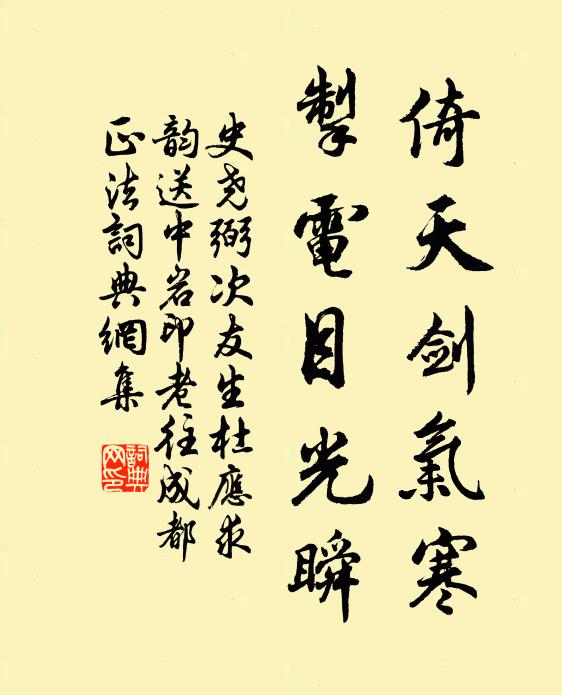 倚天劍氣寒
掣電目光瞬
史尧弼次友生杜應求
韵送中岩印老往成都
正法詞典網集
詞典
网印